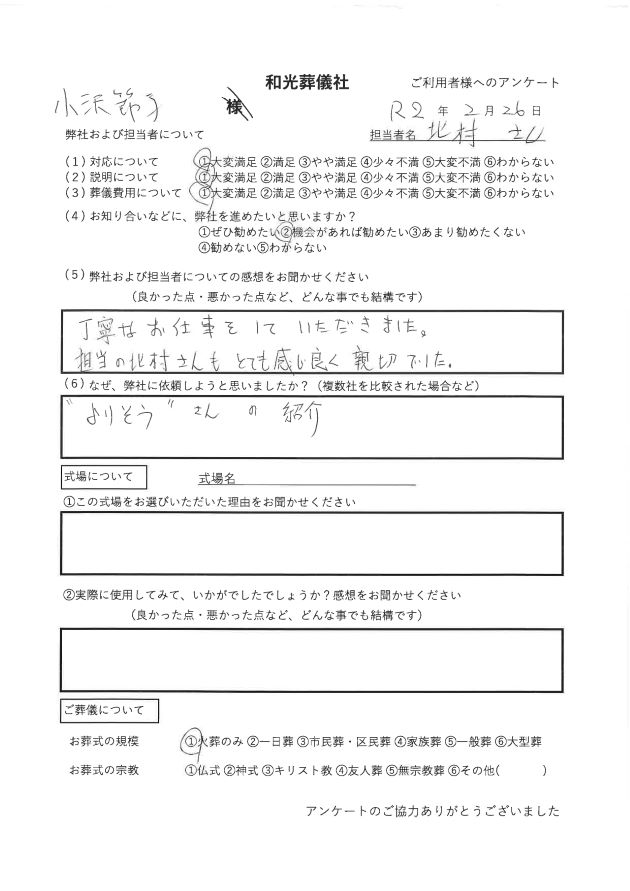 和光葬儀社
ご利用者様へのアンケート
小沢 節子 様
R2 年 2 月 26 日
弊社および担当者について
担当者名 北村 さん
(1) 対応について ①大変満足 ②満足 ③やや満足 ④少々不満 ⑤大変不満 ⑥わからない
(2) 説明について ①大変満足 ②満足 ③やや満足 ④少々不満 ⑤大変不満 ⑥わからない
(3) 葬儀費用について ①大変満足 ②満足 ③やや満足 ④少々不満 ⑤大変不満 ⑥わからない
(4) お知り合いなどに、弊社を進めたいと思いますか？
①ぜひ勧めたい②機会があれば勧めたい③あまり勧めたくない
④勧めない⑤わからない
(5) 弊社および担当者についての感想をお聞かせください
（良かった点・悪かった点など、どんな事でも結構です）
丁寧なお仕事をして いただきました。
担当の北村さんも とても感じ良く 親切でした。
(6) なぜ、弊社に依頼しようと思いましたか？（複数社を比較された場合など）
"よりそう" さん の 紹介
式場について
式場名
①この式場をお選びいただいた理由をお聞かせください
②実際に使用してみて、いかがでしたでしょうか？感想をお聞かせください
（良かった点・悪かった点など、どんな事でも結構です）
ご葬儀について
お葬式の規模 ①火葬のみ ②一日葬 ③市民葬・区民葬 ④家族葬 ⑤一般葬 ⑥大型葬
お葬式の宗教 ①仏式 ②神式 ③キリスト教 ④友人葬 ⑤無宗教葬 ⑥その他( )
アンケートのご協力ありがとうございました